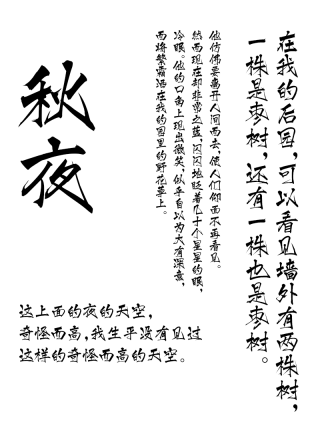 秋夜
在我的后园，可以看见墙外有两株树，
一株是枣树，还有一株也是枣树。
这上面的夜的天空，
奇怪而高，我生平没有见过
这样的奇怪而高的天空。
他仿佛要离开人间而去，使人们仰面不再看见。
然而现在却非常之蓝，闪闪地䀹着几十个星星的眼，
冷眼。他的口角上现出微笑，似乎自以为大有深意，
而将繁霜洒在我的园里的野花草上。